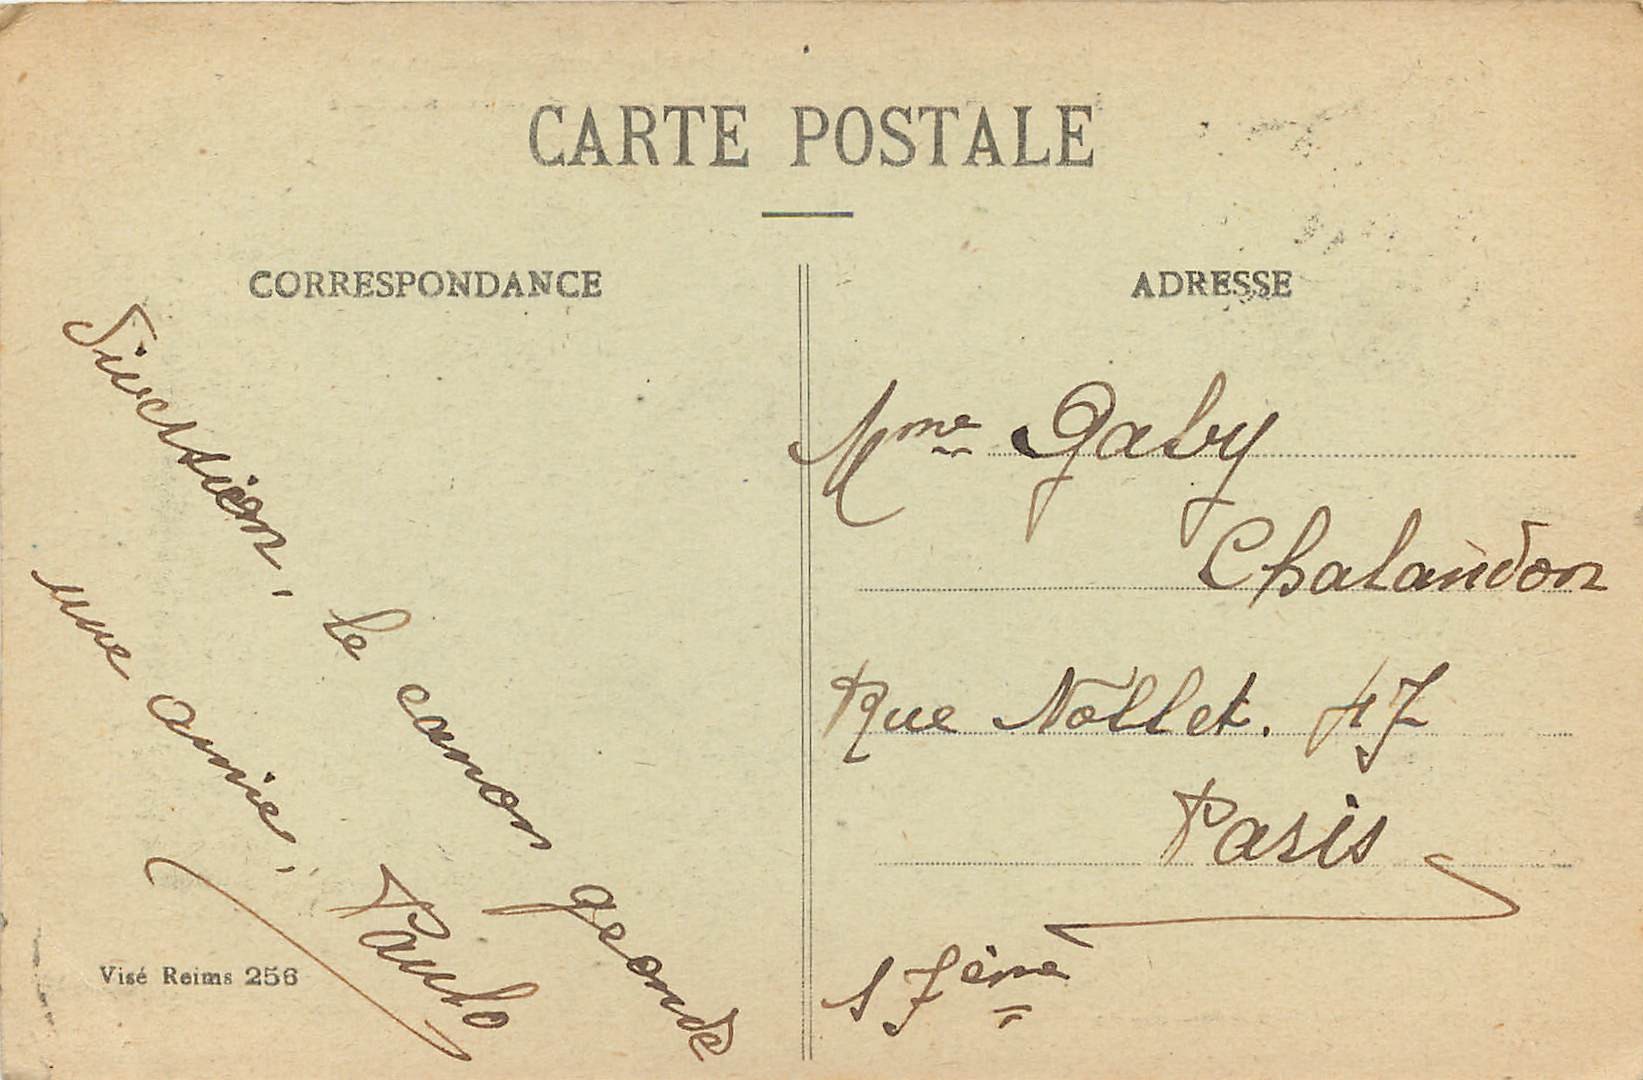 CARTE POSTALE
CORRESPONDANCE
ADRESSE
le canon gronde
une amie.
Paulo
Visé Reims 256
Mme Gaby
Chalandon
Rue Nollet. 47
Paris
17ème